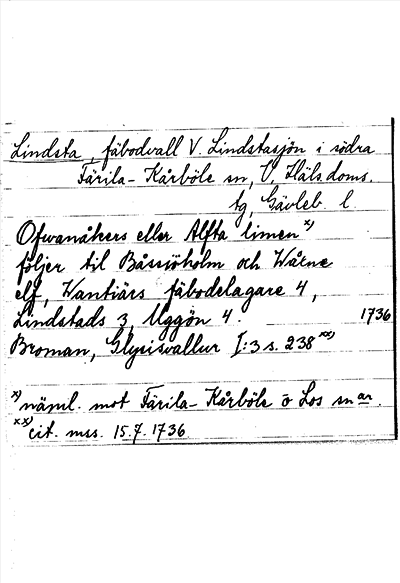 Lindsta, fäbodvall V. Lindstasjön i södra
Färila-Kårböle sn, V. Häls. doms.
tg, Gävleb. l.
Ofwanåkers eller Alfta limen x)
följer til Båssjöholm och Wåxne
elf, Wantiärs fäbodelagare 4,
Lindstads 3, Uggön 4. 1736
Broman, Glysisvallur I:3 s. 238 xx)
x) näml. mot Färila-Kårböle o Los snar.
xx) cit. mss. 15.7.1736